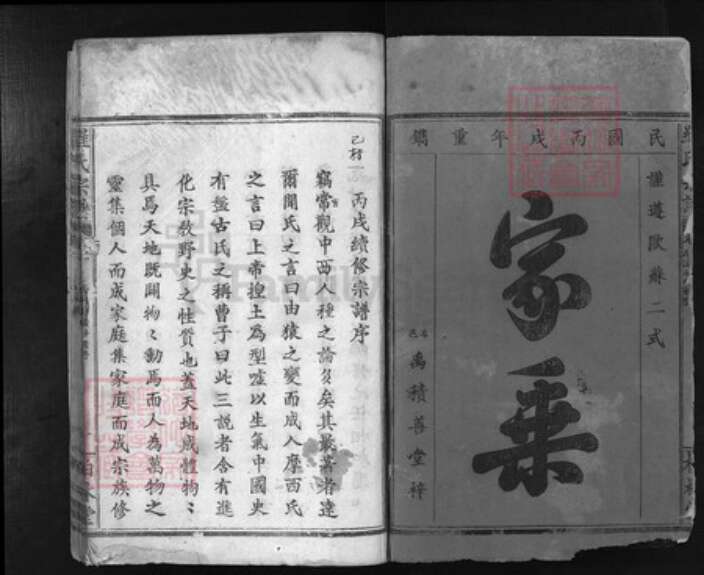 民國丙戌年重鐫
謹遵歐蘇二式
家乘
禹積善堂梓
丙戌續修宗譜序
竊嘗觀中西人種之論多矣其最著者達
爾聞氏之言曰由猿之變而成人摩西氏
之言曰上帝摶土為型噓以生氣中國史
有盤古氏之稱曹子曰此三說者含有進
化宗教野史之性質也蓋天地成體物〻
具焉天地既闢物〻動焉而人為萬物之
靈集個人而成家庭集家庭而成宗族修